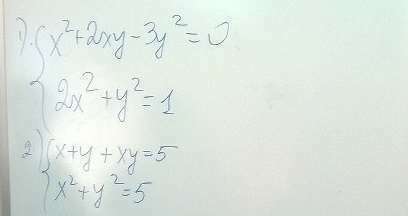 1). { x²+2xy-3y²=0
2x²+y²=1
2) { x+y+xy=5
x²+y²=5